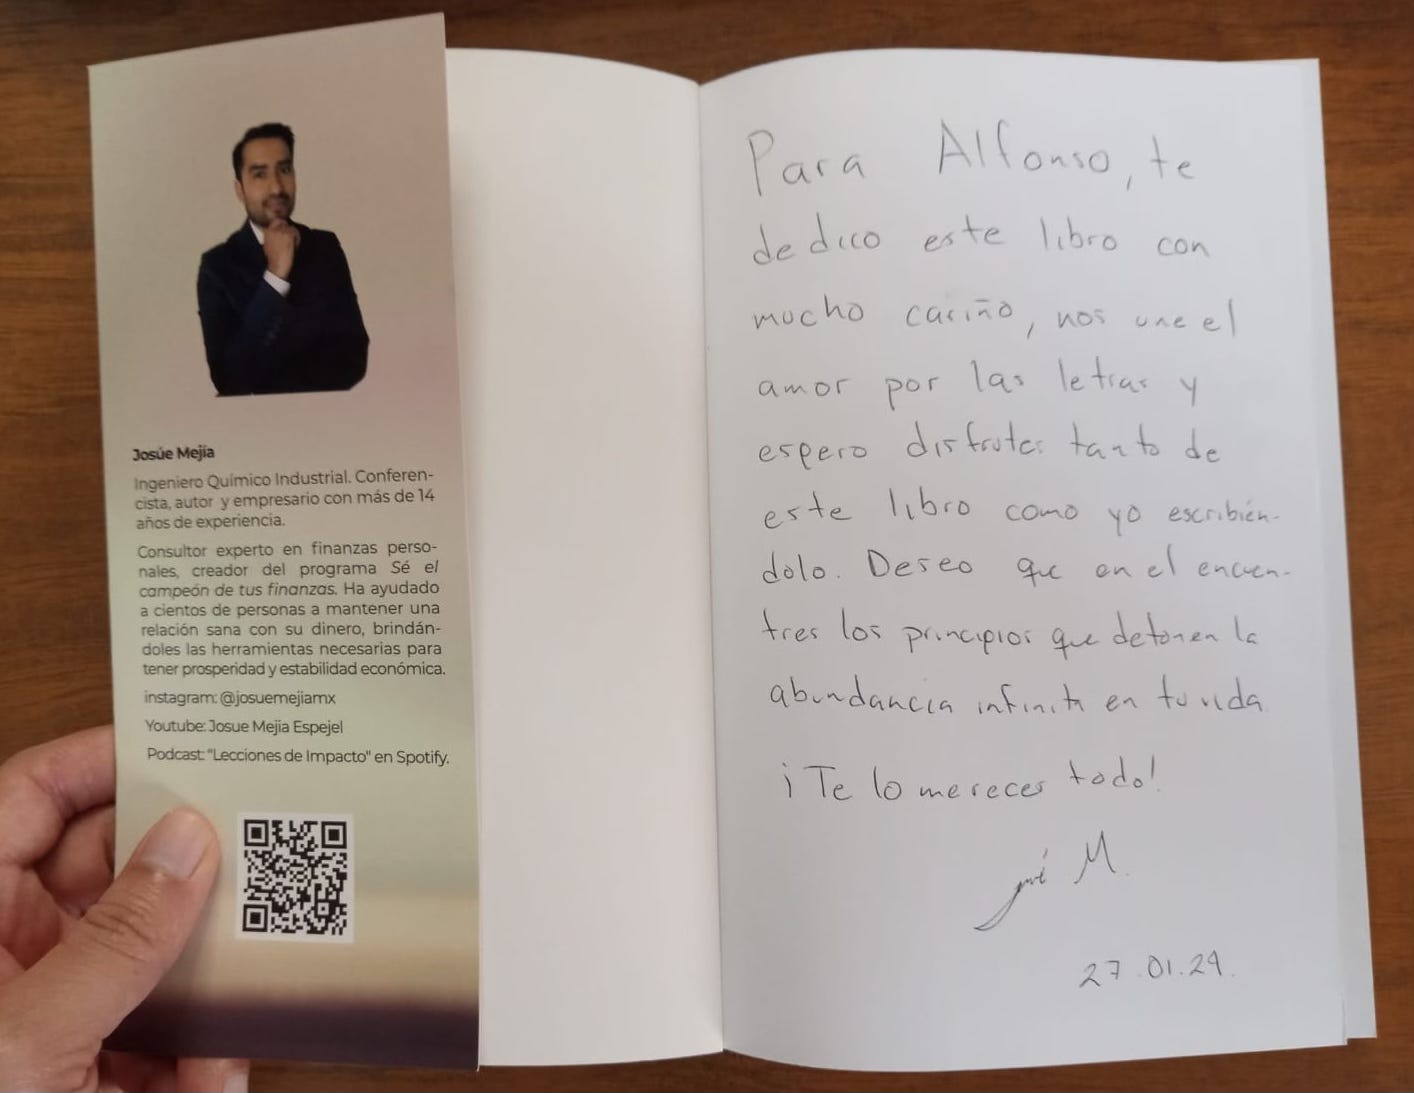 Josúe Mejía
Ingeniero Químico Industrial. Conferen-
cista, autor y empresario con más de 14
años de experiencia.
Consultor experto en finanzas perso-
nales, creador del programa Sé el
campeón de tus finanzas. Ha ayudado
a cientos de personas a mantener una
relación sana con su dinero, brindán-
doles las herramientas necesarias para
tener prosperidad y estabilidad económica.
instagram: @josuemejiamx
Youtube: Josue Mejia Espejel
Podcast: "Lecciones de Impacto" en Spotify.
Para Alfonso, te
dedico este libro con
mucho cariño, nos une el
amor por las letras y
espero disfrutes tanto de
este libro como yo escribién-
dolo. Deseo que en el encuen-
tres los principios que detonen la
abundancia infinita en tu vida
¡Te lo mereces todo!
M.
27.01.24.